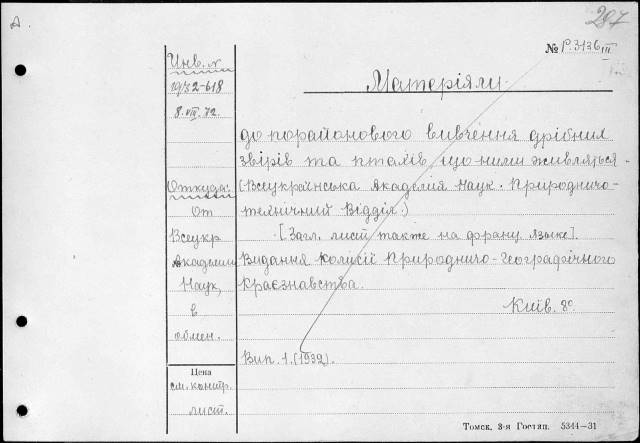 А.
297
№ Р.3136 III
Инв. №
1932-618
8.VIII.32.
Откуда:
От
Всеукр
Академии
Наук,
в
обмен.
Цена
см. контр.
лист.
Матеріяли
до порайонового вивчення дрібних
звірів та птахів, що ними живляться.
(Всеукраїнська Академия Наук. Природничо-
технічний Відділ.)
[Загл. лист также на франц. языке].
Видання Комісії Природничо-Географічного
Краєзнавства.
Київ. 8º
Вип. 1. (1932).
Томск. 3-я Гостип. 5344-31